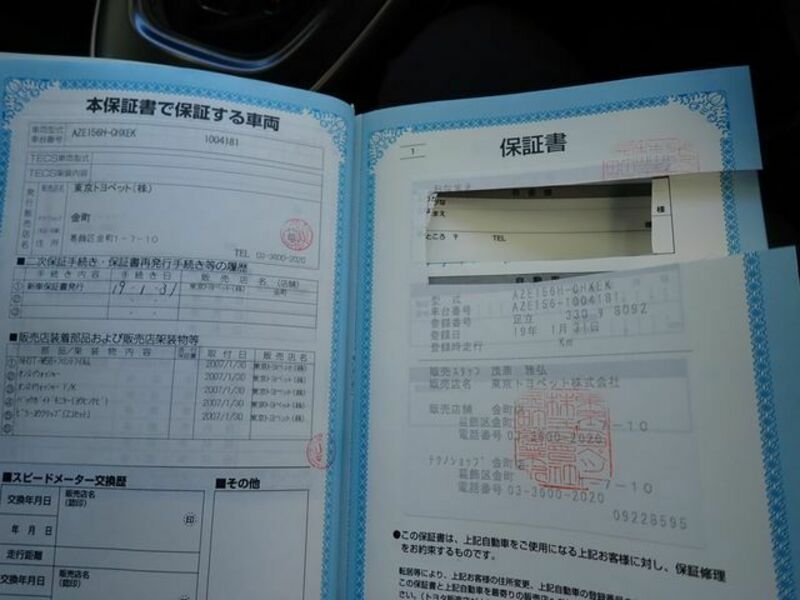 本保証書で保証する車両
車両型式 AZE156H-QHXEK
車台番号 1004181
TECS車両型式
TECS架装内容
東京トヨペット(株)
金町
住所 葛飾区金町1-7-10
TEL 03-3600-2020
■二次保証手続き・保証書再発行手続き等の履歴
手続き内容 手続き日 販売店名(店舗)
① 新車保証書発行 19・1・31 東京トヨペット(株) 金町
②
③
■販売店装着部品および販売店架装物等
部品/架装物内容 取付日 販売店名
① 2007/1/30 東京トヨペット(株)
② 2007/1/30 東京トヨペット(株)
③ 2007/1/30 東京トヨペット(株)
④ 2007/1/30 東京トヨペット(株)
⑤ 2007/1/30 東京トヨペット(株)
■スピードメーター交換歴
交換年月日 販売店名(認印)
年 月 日 印
走行距離
交換年月日 販売店名(認印)
■その他
1
保証書
様
ところ 〒 TEL
型式 AZE156H-QHXEK
車台番号 AZE156-1004181
登録番号 足立 330 9 8092
登録日 19年 1月31日
登録時走行 Km
販売スタッフ 茂 雅弘
販売店名 東京トヨペット株式会社
販売店舗 金町店
葛飾区金町1-7-10
電話番号 03-3600-2020
テクノショップ 金町店
葛飾区金町1-7-10
電話番号 03-3600-2020
09228595
●この保証書は、上記自動車をご使用になる上記お客様に対し、保証修理
をお約束するものです。
転居等により、上記お客様の住所変更、上記自動車の登録番号
この保証書と上記自動車を最寄りの販売店
さい。(トヨタ販売店